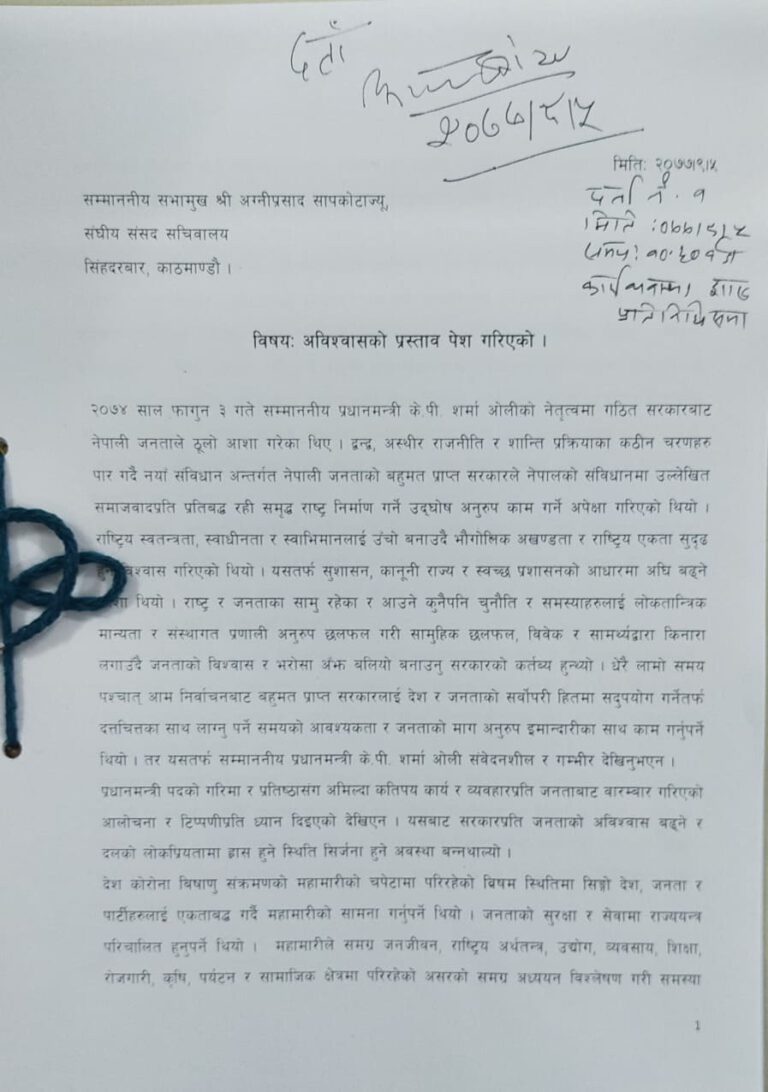 दर्ता
२०७७/९/५
मिति: २०७७।९।५
दर्ता नं. १
सम्माननीय सभामुख श्री अग्नीप्रसाद सापकोटाज्यू,
मिति :०७७/९/५
संघीय संसद सचिवालय
सिंहदरबार, काठमाण्डौ ।
प्रतिनिधि सभा
विषय: अविश्वासको प्रस्ताव पेश गरिएको ।
२०७४ साल फागुन ३ गते सम्माननीय प्रधानमन्त्री के.पी. शर्मा ओलीको नेतृत्वमा गठित सरकारबाट
नेपाली जनताले ठूलो आशा गरेका थिए । द्वन्द्व, अस्थीर राजनीति र शान्ति प्रक्रियाका कठीन चरणहरु
पार गर्दै नयाँ संविधान अन्तर्गत नेपाली जनताको बहुमत प्राप्त सरकारले नेपालको संविधानमा उल्लेखित
समाजवादप्रति प्रतिबद्ध रही समृद्ध राष्ट्र निर्माण गर्ने उद्घोष अनुरुप काम गर्ने अपेक्षा गरिएको थियो ।
राष्ट्रिय स्वतन्त्रता, स्वाधीनता र स्वाभिमानलाई उंचो बनाउदै भौगोलिक अखण्डता र राष्ट्रिय एकता सुदृढ
विश्वास गरिएको थियो । यसतर्फ सुशासन, कानूनी राज्य र स्वच्छ प्रशासनको आधारमा अघि बढ्ने
थियो । राष्ट्र र जनताका सामु रहेका र आउने कुनैपनि चुनौति र समस्याहरुलाई लोकतान्त्रिक
मान्यता र संस्थागत प्रणाली अनुरुप छलफल गरी सामुहिक छलफल, विवेक र सामर्थ्यद्वारा किनारा
लगाउँदै जनताको विश्वास र भरोसा अंझ बलियो बनाउनु सरकारको कर्तव्य हुन्थ्यो । धेरै लामो समय
पश्चात् आम निर्वाचनबाट बहुमत प्राप्त सरकारलाई देश र जनताको सर्वोपरी हितमा सदुपयोग गर्नेतर्फ
दत्तचित्तका साथ लाग्नु पर्ने समयको आवश्यकता र जनताको माग अनुरुप इमान्दारीका साथ काम गर्नुपर्ने
थियो । तर यसतर्फ सम्माननीय प्रधानमन्त्री के.पी. शर्मा ओली संवेदनशील र गम्भीर देखिनुभएन ।
प्रधानमन्त्री पदको गरिमा र प्रतिष्ठासंग अमिल्दा कतिपय कार्य र व्यवहारप्रति जनताबाट बारम्बार गरिएको
आलोचना र टिप्पणीप्रति ध्यान दिइएको देखिएन । यसबाट सरकारप्रति जनताको अविश्वास बढ्ने र
दलको लोकप्रियतामा ह्रास हुने स्थिति सिर्जना हुने अवस्था बन्नथाल्यो ।
देश कोरोना बिषाणु संक्रमणको महामारीको चपेटामा परिरहेको बिषम स्थितिमा सिङ्गो देश, जनता र
पार्टीहरुलाई एकताबद्ध गर्दै महामारीको सामना गर्नुपर्ने थियो । जनताको सुरक्षा र सेवामा राज्ययन्त्र
परिचालित हुनुपर्ने थियो । महामारीले समग्र जनजीवन, राष्ट्रिय अर्थतन्त्र, उद्योग, व्यवसाय, शिक्षा,
रोजगारी, कृषि, पर्यटन र सामाजिक क्षेत्रमा परिरहेको असरको समग्र अध्ययन विश्लेषण गरी समस्या
1